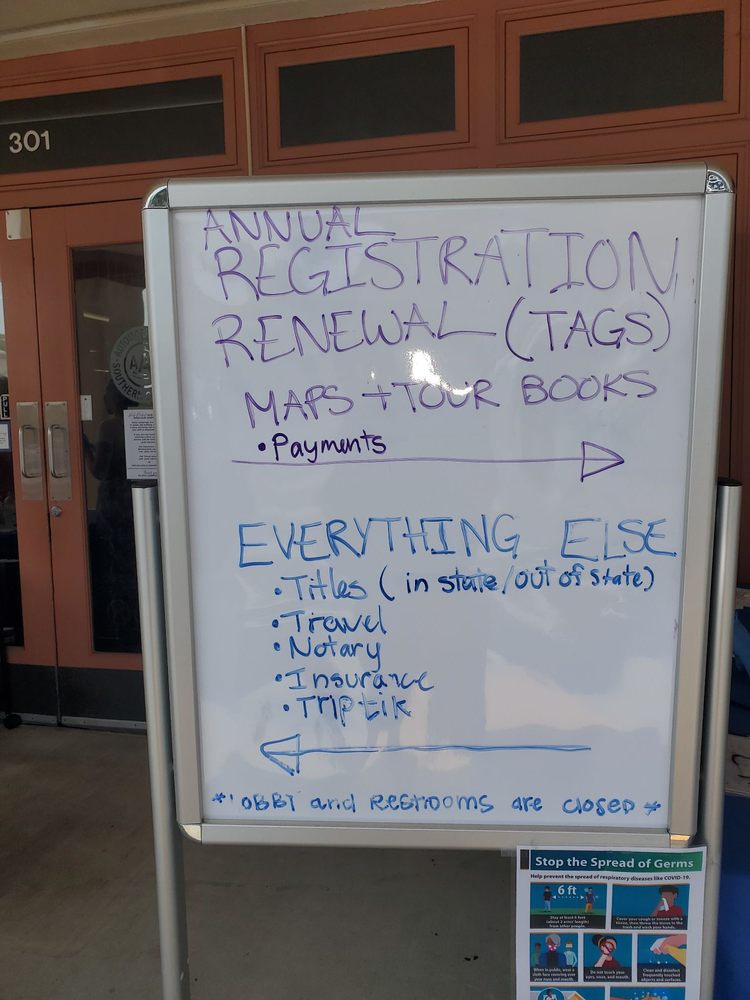 301
ANNUAL
REGISTRATION
RENEWAL (TAGS)
MAPS + TOUR BOOKS
• Payments
EVERYTHING ELSE
• Titles (in state/out of state)
• Travel
• Notary
• Insurance
• Triptik
* LOBBY and Restrooms are closed *
PULL
Stop the Spread of Germs
Help prevent the spread of respiratory diseases like COVID-19.
6 ft
Stay at least 6 feet
(about 2 arms' length)
from other people.
Cover your cough or sneeze with a
tissue, then throw the tissue in the
trash and wash your hands.
When in public, wear a
cloth face covering over
your nose and mouth.
Do not touch your
eyes, nose, and mouth.
Clean and disinfect
frequently touched
objects and surfaces.